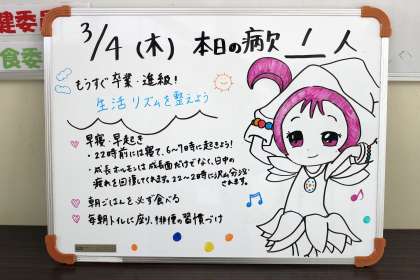 健委員
食委員
3/4 (木) 本日の病欠 1人
もうすぐ卒業・進級!
生活リズムを整えよう
早寝・早起き
・22時前には寝て、6〜7時に起きよう!
・成長ホルモンは成長面だけでなく、日中の
疲れを回復してくれます。22〜2時に沢山分泌
されます。
朝ごはんを必ず食べる
毎朝トイレに座り、排便の習慣づけ